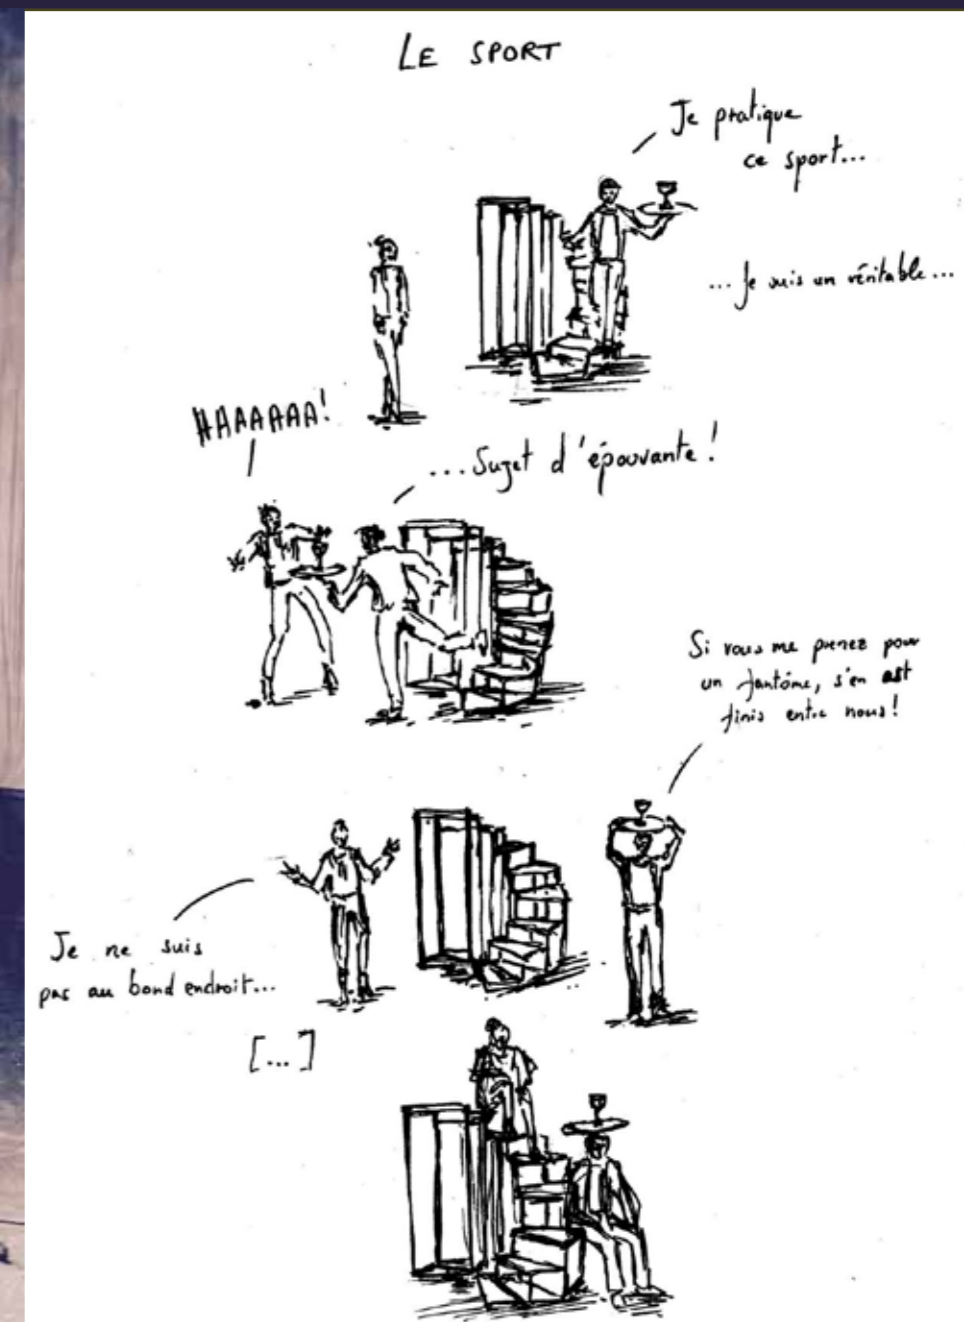 LE SPORT
Je pratique
ce sport...
... Je suis un véritable...
HAAAAAA!
...Sujet d'épouvante !
Si vous me prenez pour
un fantôme, s'en est
finis entre nous !
Je ne suis
pas au bond endroit...
[...]